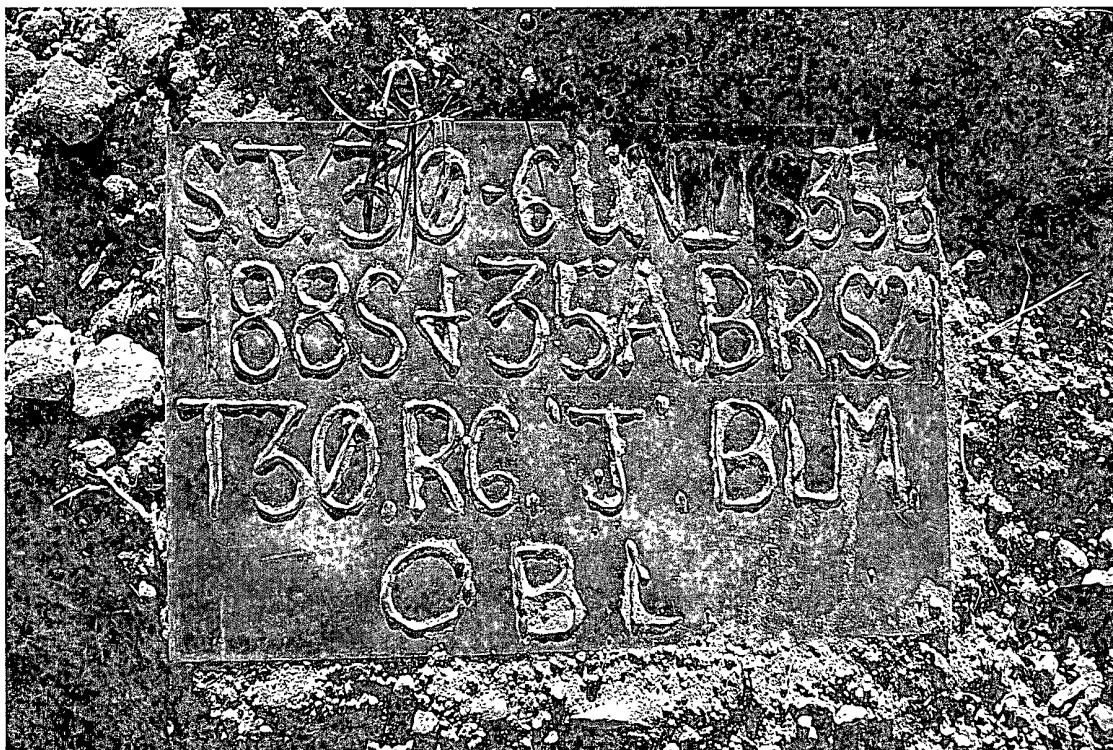 S.J 30-6 UNIT
-188S+35A.BR.S21
T30.R6.J.BLM
OBL